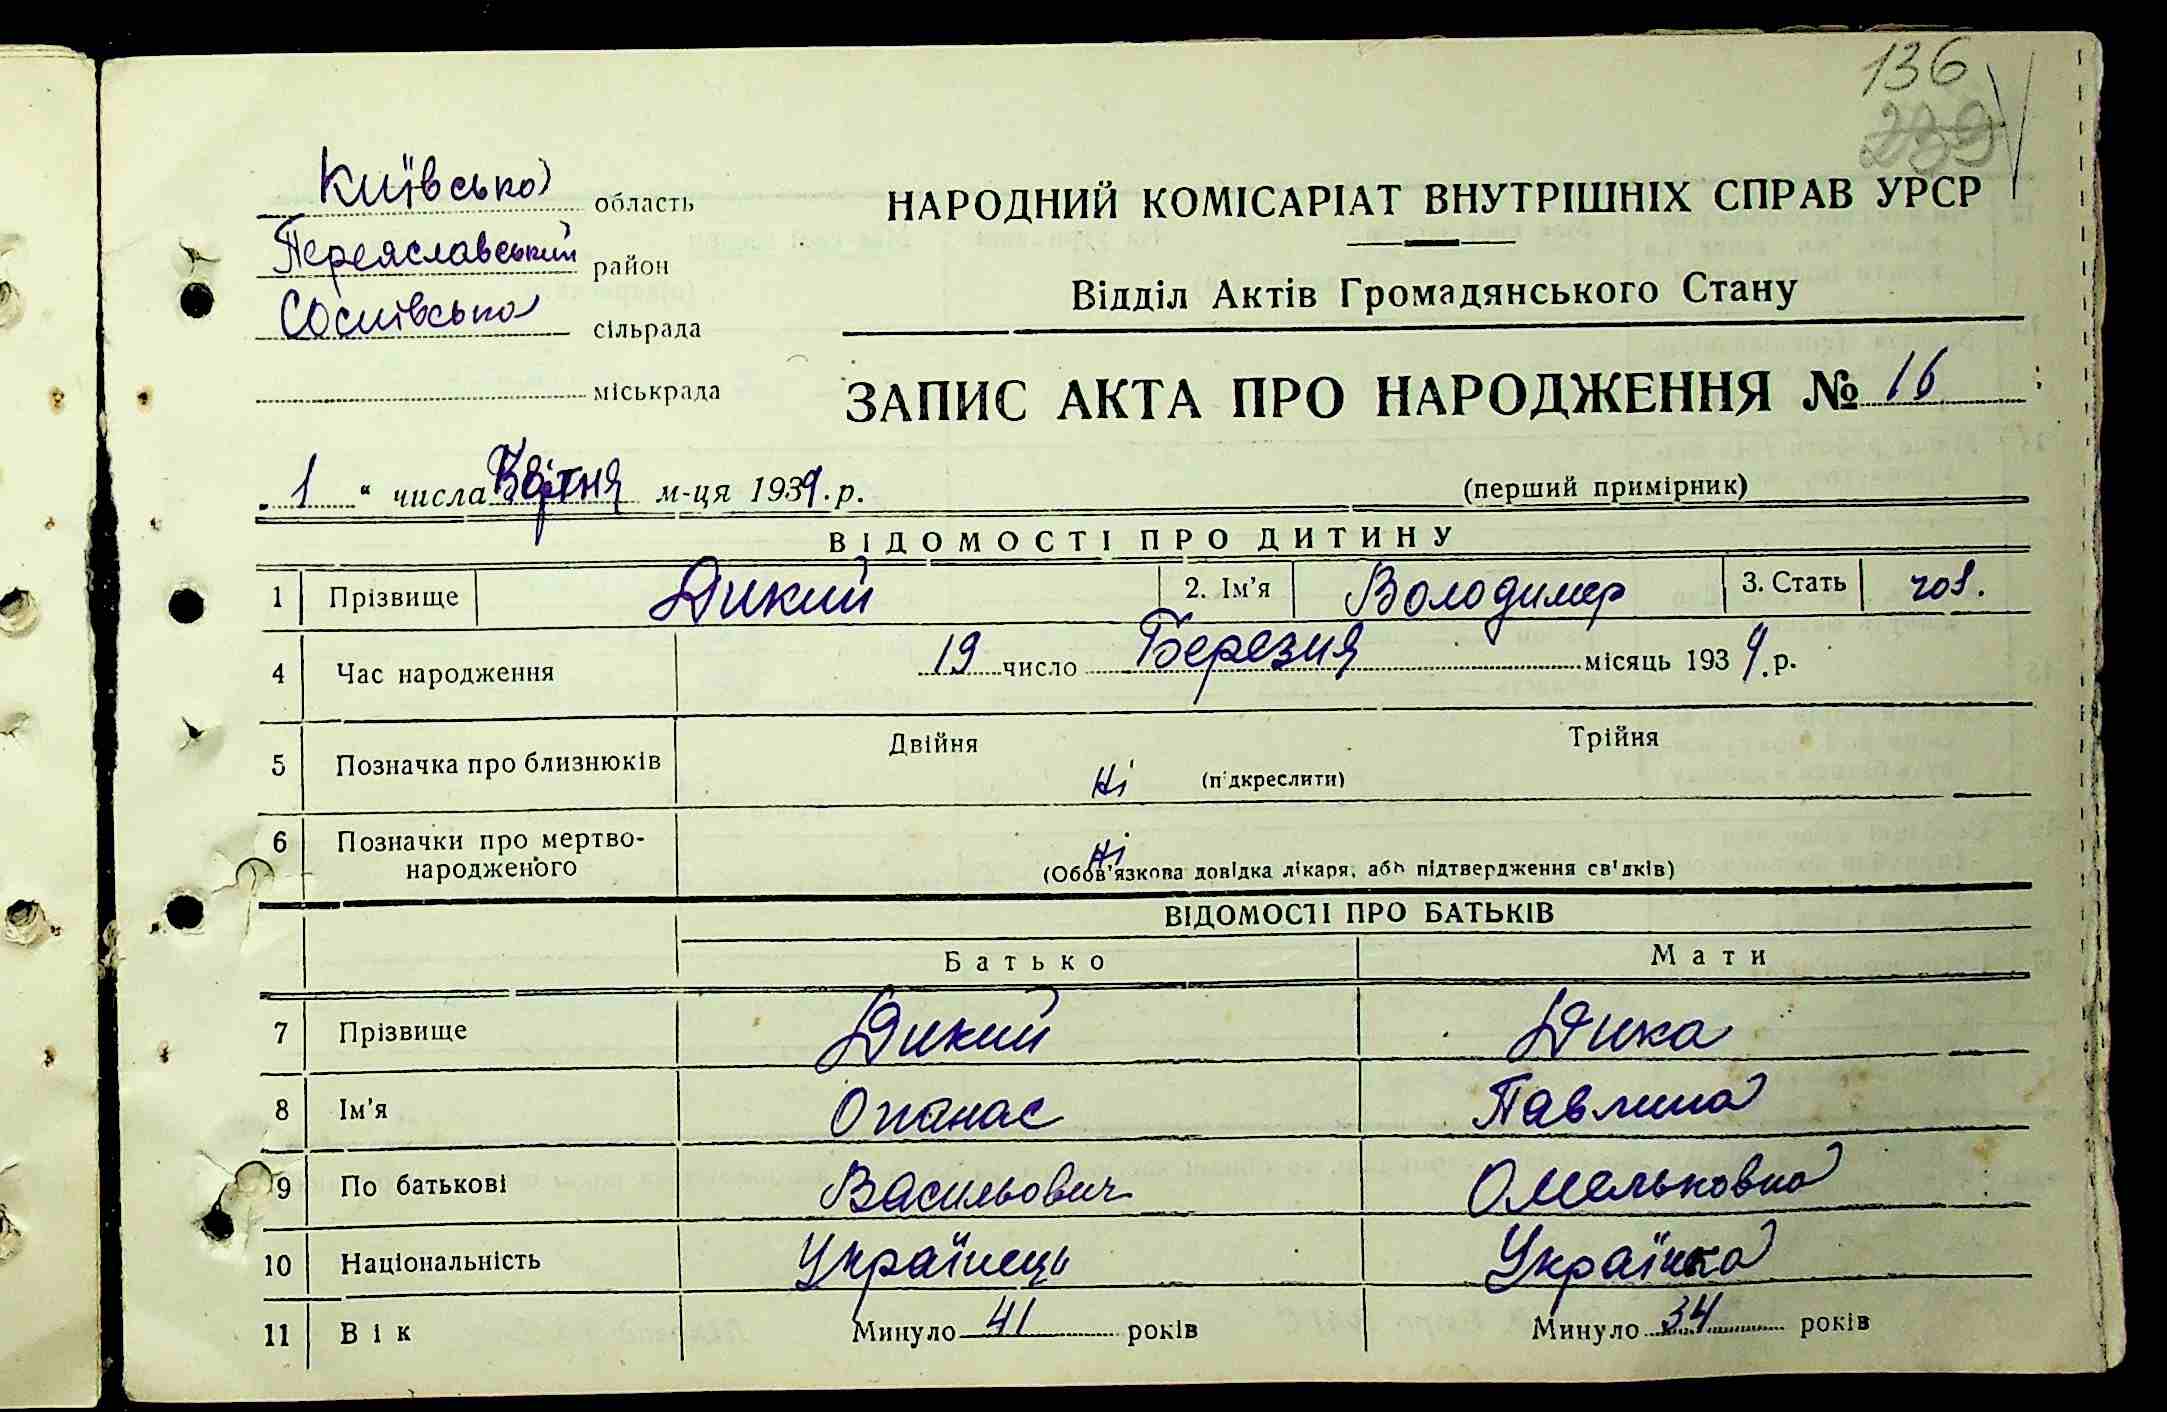 136
239
Київська область
Переяславський район
Соснівська сільрада
міськрада
НАРОДНИЙ КОМІСАРІАТ ВНУТРІШНІХ СПРАВ УРСР
Відділ Актів Громадянського Стану
ЗАПИС АКТА ПРО НАРОДЖЕННЯ № 16
„ 1 “ числа Квітня м-ця 1939 р.
(перший примірник)
ВІДОМОСТІ ПРО ДИТИНУ
1 Прізвище Дикий 2. Ім'я Володимер 3. Стать чол.
4 Час народження 19 число Березня місяць 1939 р.
5 Позначка про близнюків Двійня Трійня
Ні (підкреслити)
6 Позначки про мертво-
народженого Ні
(Обов'язкова довідка лікаря, або підтвердження свідків)
ВІДОМОСТІ ПРО БАТЬКІВ
Батько Мати
7 Прізвище Дикий Дика
8 Ім'я Опанас Павлина
9 По батькові Васильович Омельковна
10 Національність Українець Українка
11 Вік Минуло 41 років Минуло 34 років